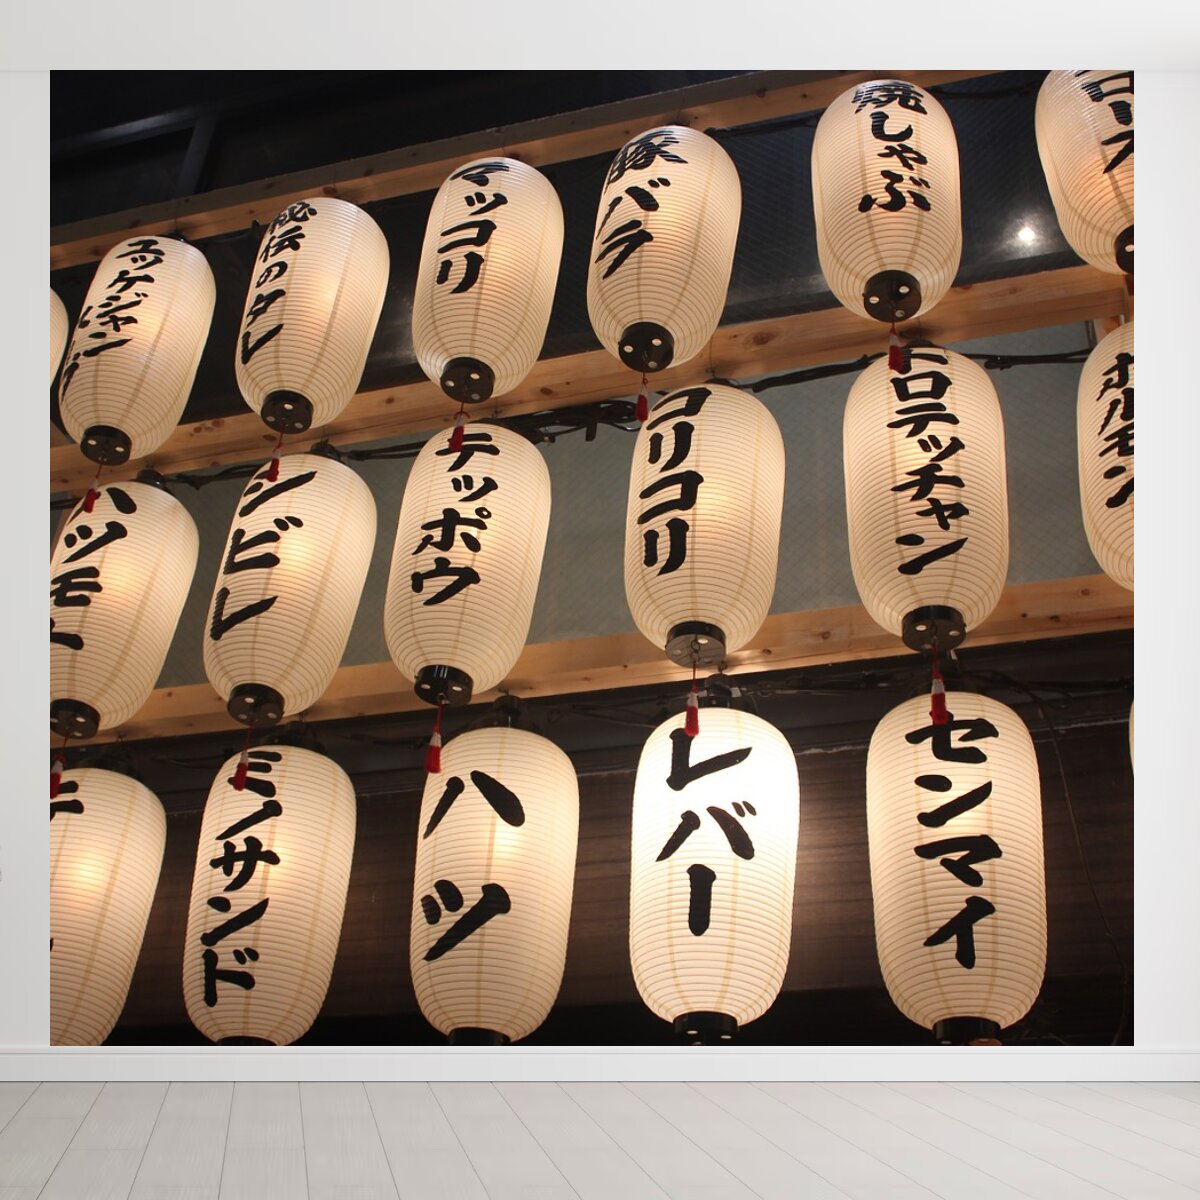 ユッケジャン
秘伝のタレ
マッコリ
豚バラ
焼しゃぶ
ロース
ハツモト
シビレ
テッポウ
コリコリ
トロテッチャン
ホルモン
ミノサンド
ハツ
レバー
センマイ